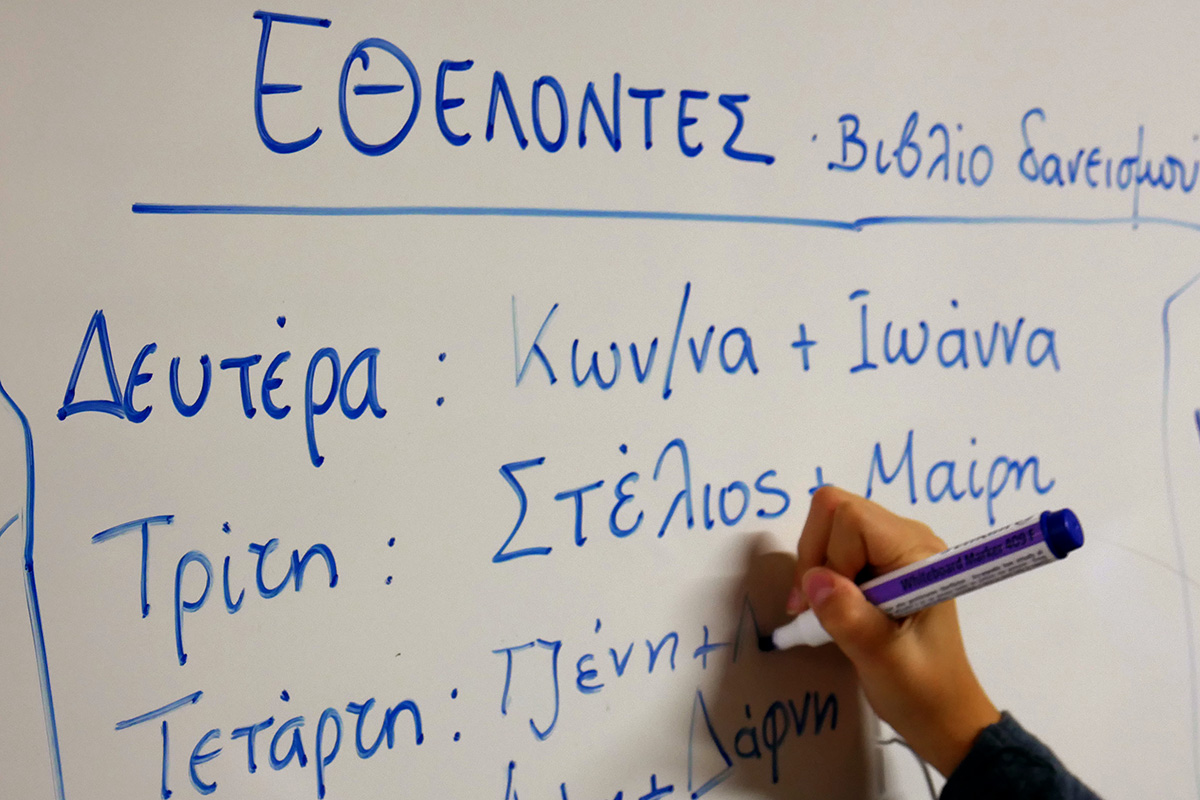 ΕΘΕΛΟΝΤΕΣ · Βιβλίο δανεισμού
Δευτέρα : Κων/να + Ιωάννα
Τρίτη : Στέλιος + Μαίρη
Τετάρτη : Τζένη +
+ Δάφνη
Whiteboard Marker 409 F